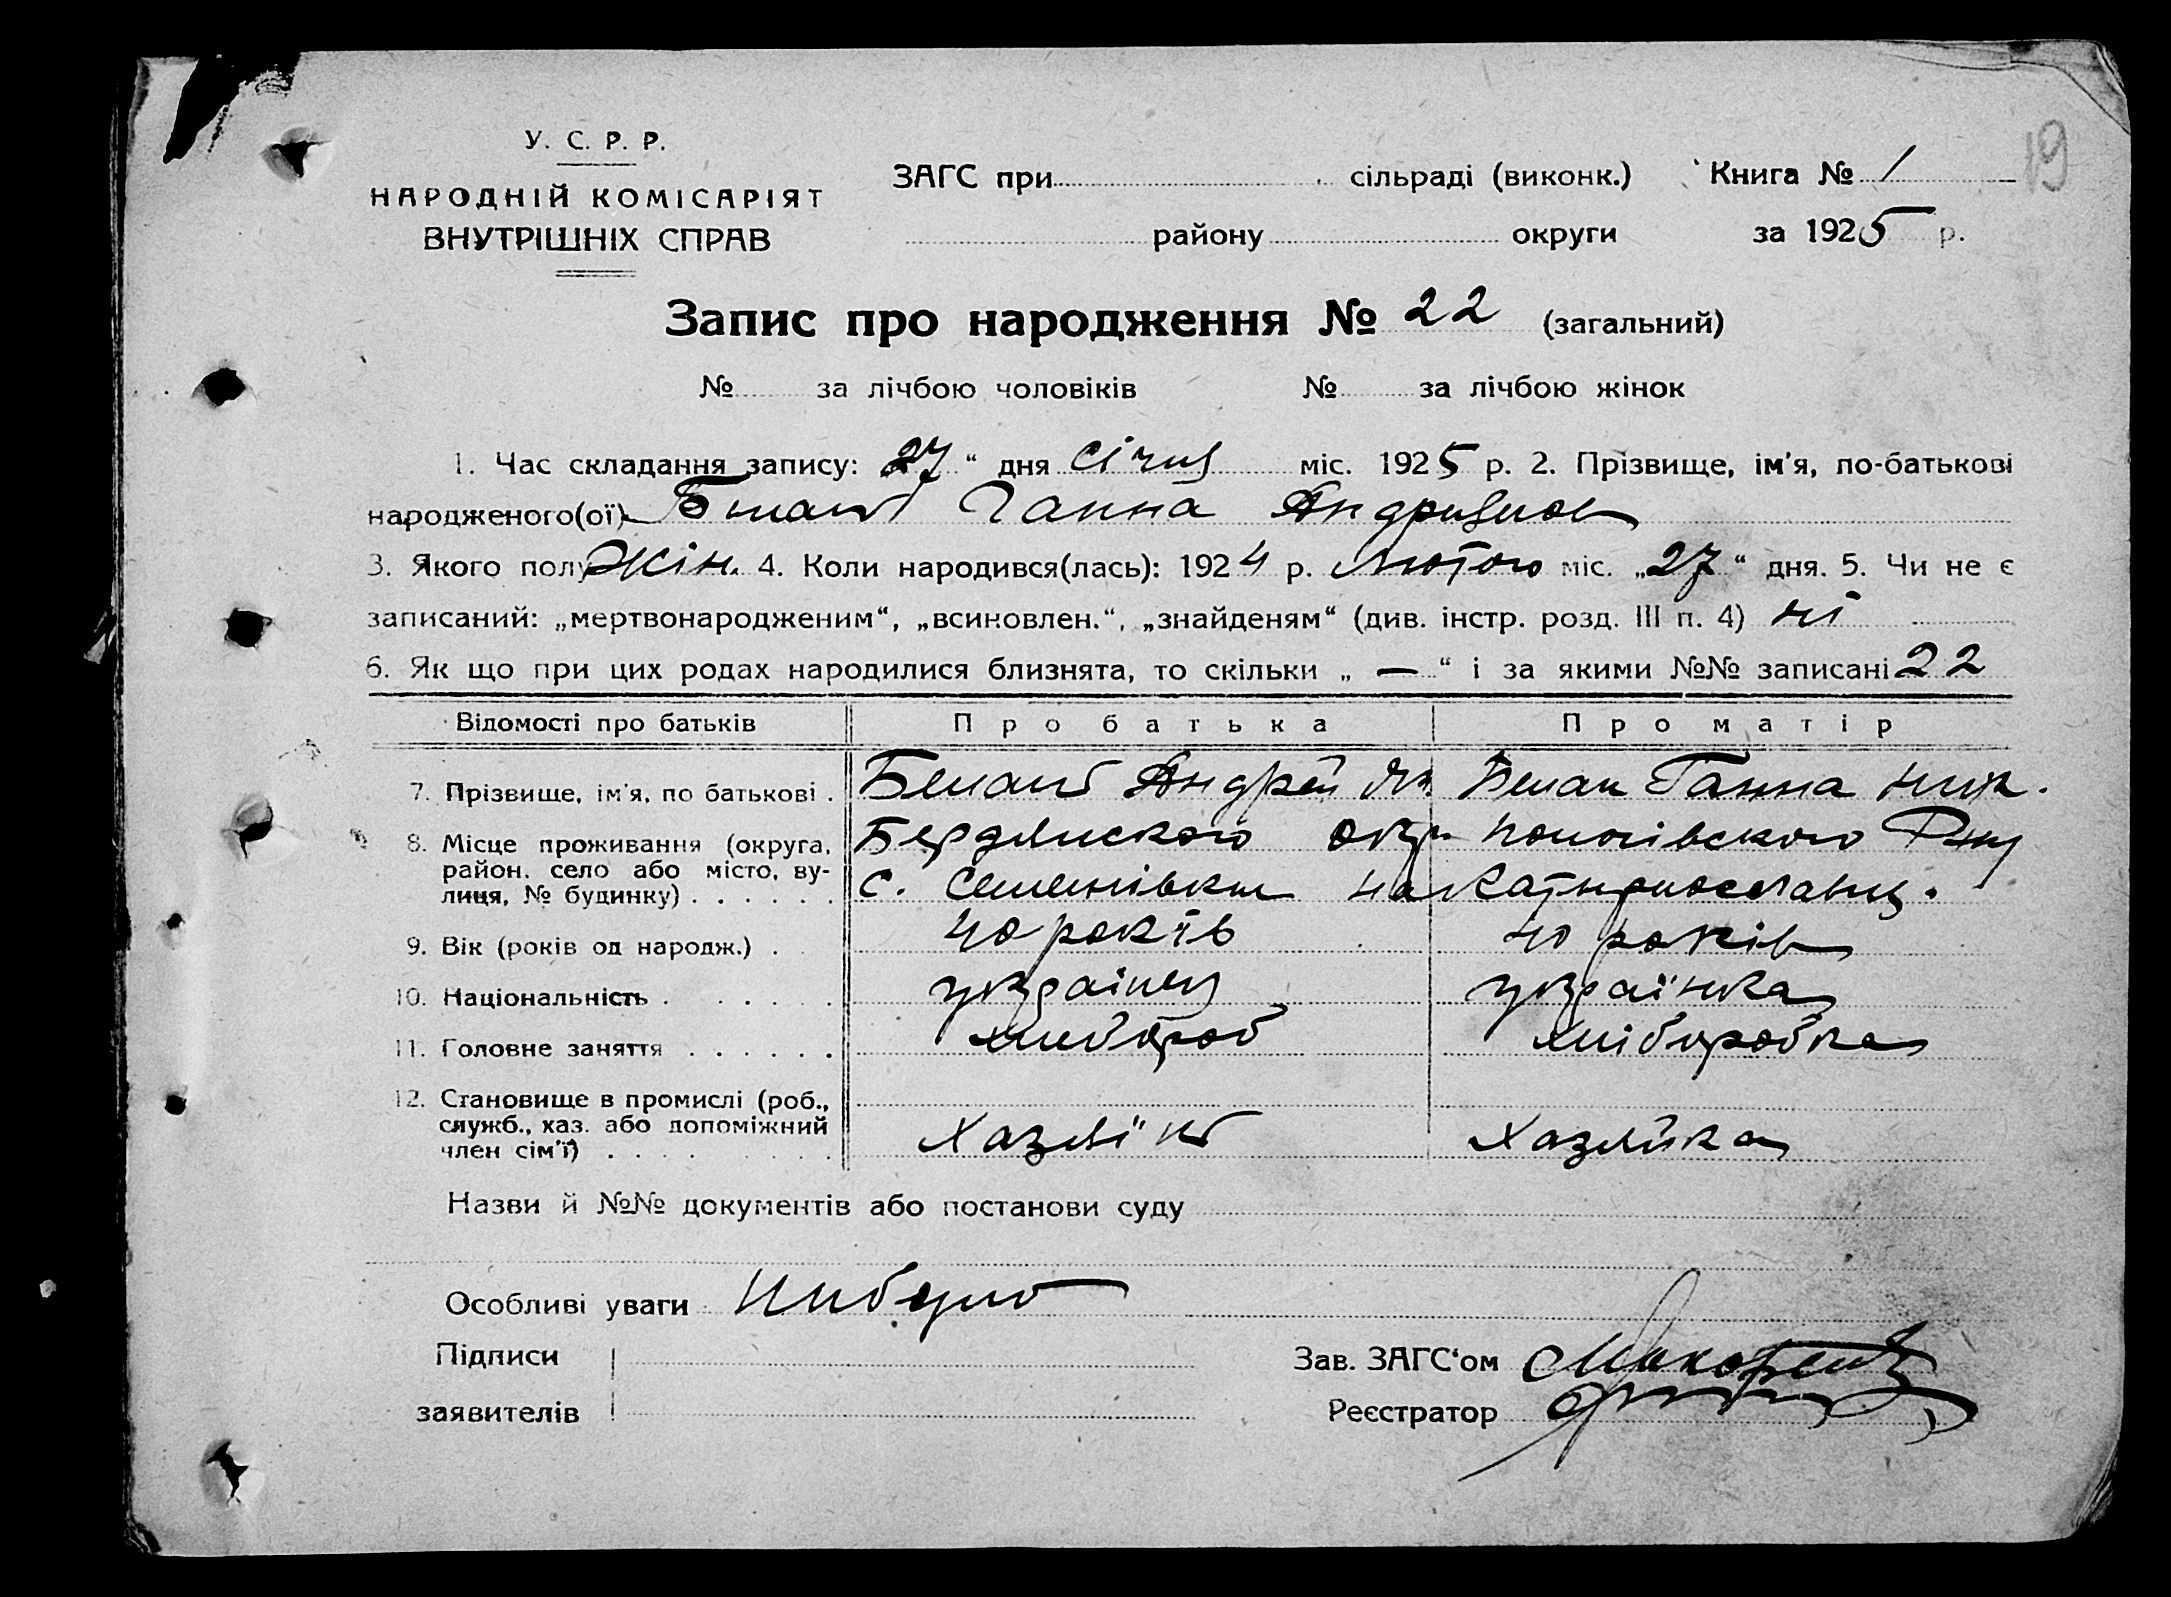 У. С. Р. Р.
НАРОДНІЙ КОМІСАРІЯТ
ВНУТРІШНІХ СПРАВ
ЗАГС при сільраді (виконк.) Книга № 1
19
району округи за 1925 р.
Запис про народження № 22 (загальний)
№ за лічбою чоловіків № за лічбою жінок
1. Час складання запису: 27 “ дня січня міс. 1925 р. 2. Прізвище, ім'я, по-батькові
народженого(ої) Ганна
3. Якого полу Жін. 4. Коли народився(лась): 1924 р. Лютого міс. „27“ дня. 5. Чи не є
записаний: „мертвонародженим“, „всиновлен.“, „знайденям“ (див. інстр. розд. III п. 4) ні
6. Як що при цих родах народилися близнята, то скільки „ — “ і за якими №№ записані 22
Відомості про батьків Про батька Про матір
7. Прізвище, ім'я, по батькові . Андрей Ганна
8. Місце проживання (округа, район, село або місто, вулиця, № будинку) . . . . . .
Бердянского окр.
с. Семенівки
9. Вік (років од народж.) . 40 років 40 років
10. Національність . . . . . українец українка
11. Головне заняття . . . . . . хлибороб хліборобка
12. Становище в промислі (роб., служб., хаз. або допоміжний член сім'ї) . . . . Хазяїн Хазяйка
Назви й №№ документів або постанови суду
Особливі уваги
Підписи Зав. ЗАГС'ом
заявителів Реєстратор